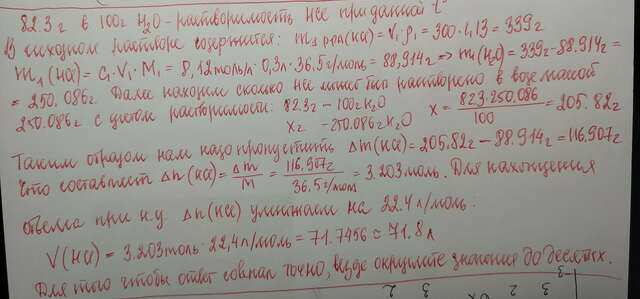 82.3 г в 100г H₂O - растворимость HCl при данной t°
В исходном растворе содержится: m₁ р-ра(HCl) = V₁·ρ₁ = 300·1,13 = 339г
m₁(HCl) = C₁·V₁·M₁ = 8,12моль/л·0,3л·36.5г/моль = 88,914г ⇒ m₁(H₂O) = 339г-88.914г =
= 250.086г. Далее находим сколько HCl может быть растворено в воде массой
250.086г с учетом растворимости: 82.3г - 100г H₂O
xг - 250.086г H₂O
x = 82.3·250.086 / 100 = 205.82г
Таким образом нам надо пропустить Δm(HCl) = 205.82г - 88.914г = 116.907г
Что составляет Δn(HCl) = Δm / M = 116.907г / 36.5г/моль = 3.203моль. Для нахождения
объема при н.у. Δn(HCl) умножаем на 22.4л/моль.
V(HCl) = 3.203моль·22,4л/моль = 71.7456 ≈ 71.8л
Для того чтобы ответ совпал точно, везде округлите значения до десятых.